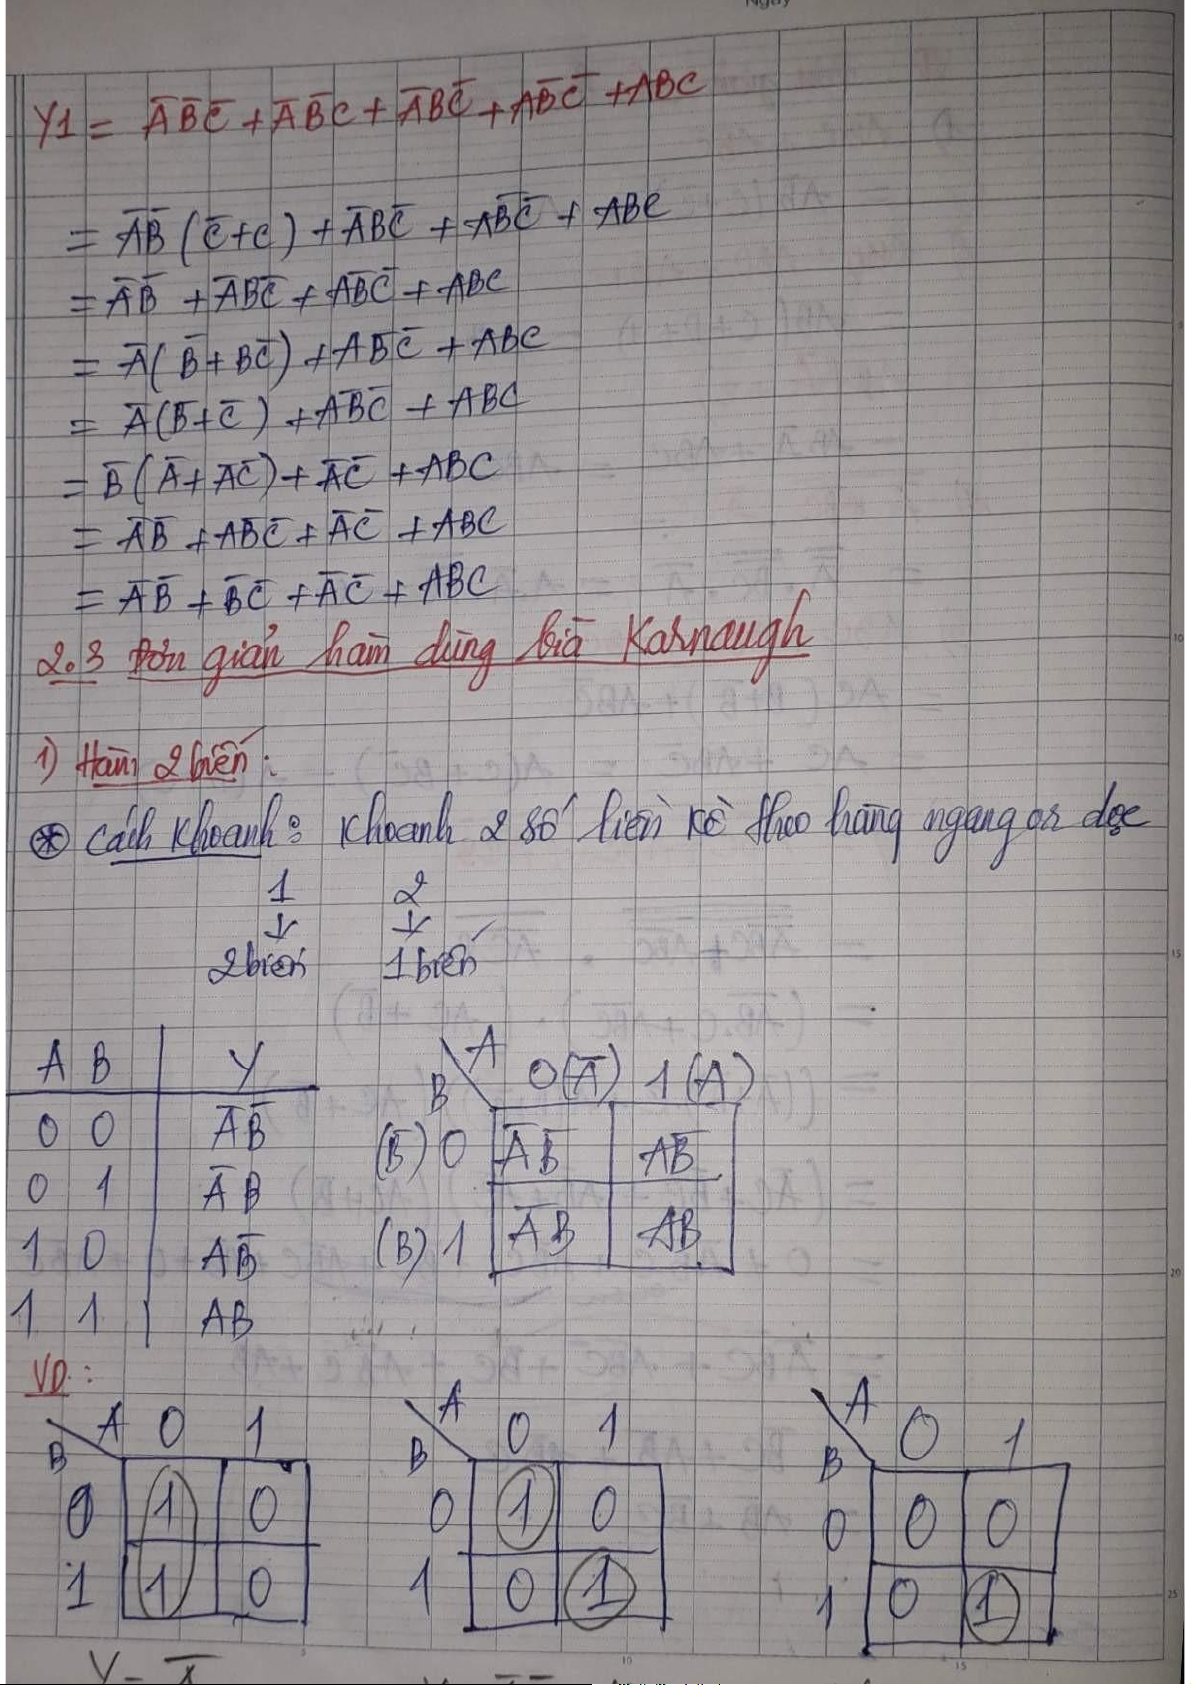 Y1 = A̅B̅C̅ + A̅B̅C + A̅BC̅ + AB̅C̅ + ABC
= A̅B̅(C̅+C) + A̅BC̅ + AB̅C̅ + ABC
= A̅B̅ + A̅BC̅ + AB̅C̅ + ABC
= A̅(B̅+BC̅) + AB̅C̅ + ABC
= A̅(B̅+C̅) + AB̅C̅ + ABC
= B̅(A̅+AC̅) + A̅C̅ + ABC
= A̅B̅ + AB̅C̅ + A̅C̅ + ABC
= A̅B̅ + B̅C̅ + A̅C̅ + ABC
2.3 Đơn giản hàm dùng bìa Karnaugh
1) Hàm 2 biến:
* Cách khoanh: Khoanh 2 số liền kề theo hàng ngang or dọc
1 2
↓ ↓
2 biến 1 biến
A B Y
0 0 A̅B̅
0 1 A̅B
1 0 AB̅
1 1 AB
A
B 0(A̅) 1(A)
(B̅) 0 A̅B̅ AB̅
(B) 1 A̅B AB
VD:
A 0 1
B
0 1 0
1 1 0
A 0 1
B
0 1 0
1 0 1
A 0 1
B
0 0 0
1 0 1
Y = A̅